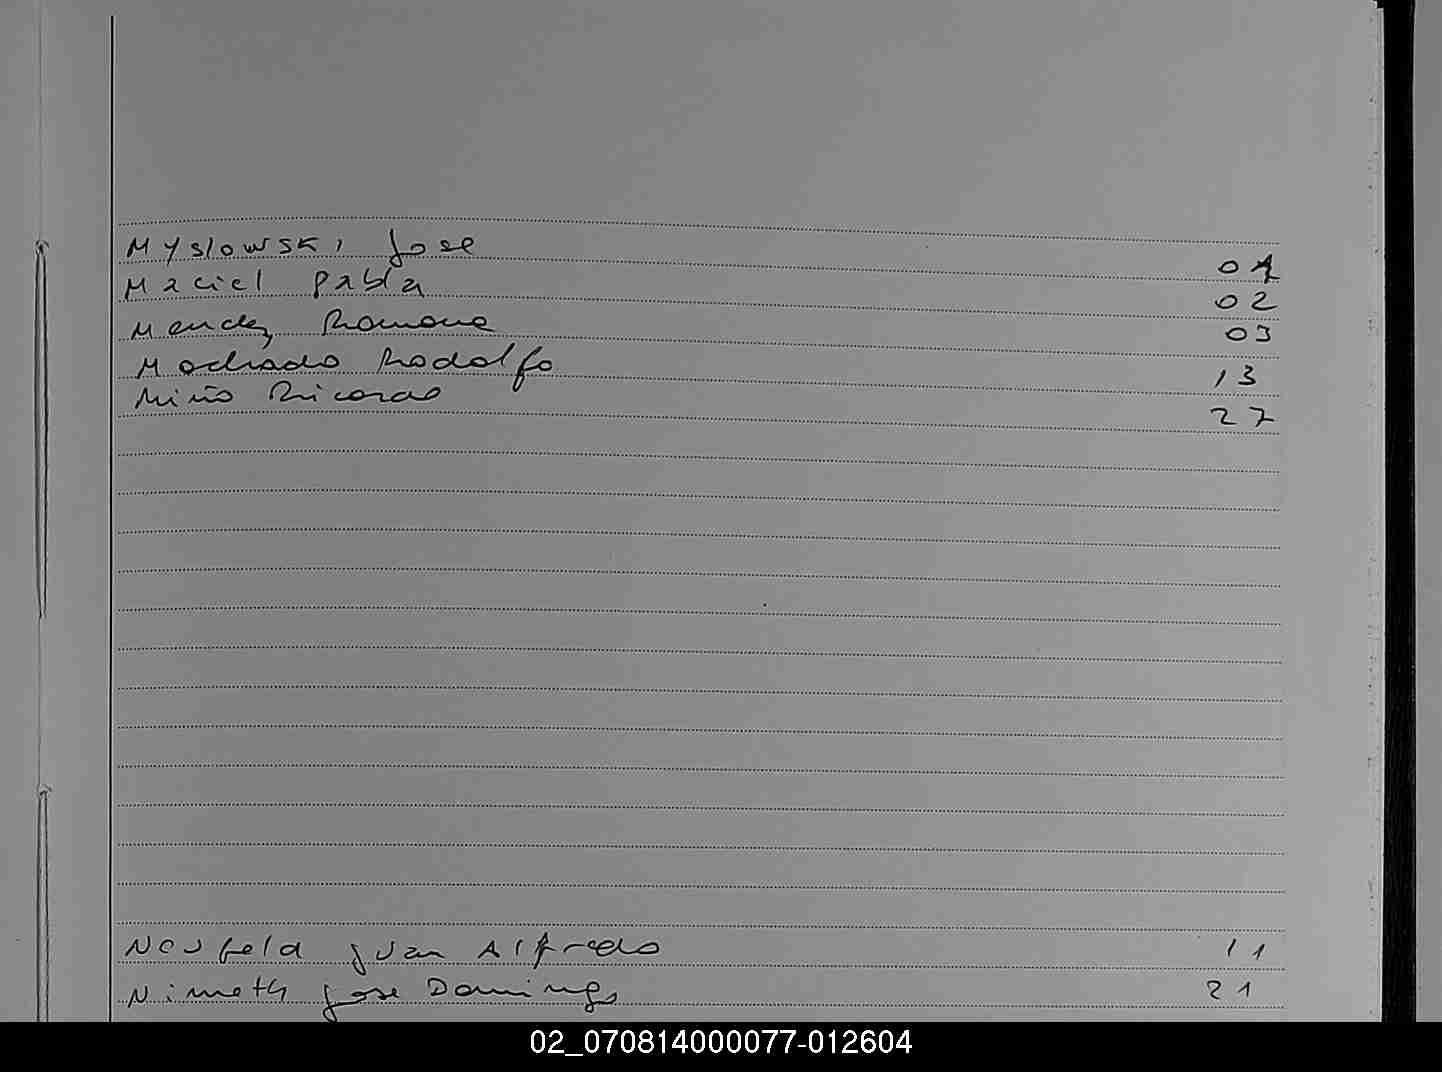 Myslowski Jose 01
Maciel Pabla 02
Mendez Ramona 03
Machado Rodolfo 13
Miño Ricardo 27
Neufeld Juan Alfredo 11
Nimeth Jose Domingo 21
02_070814000077-012604